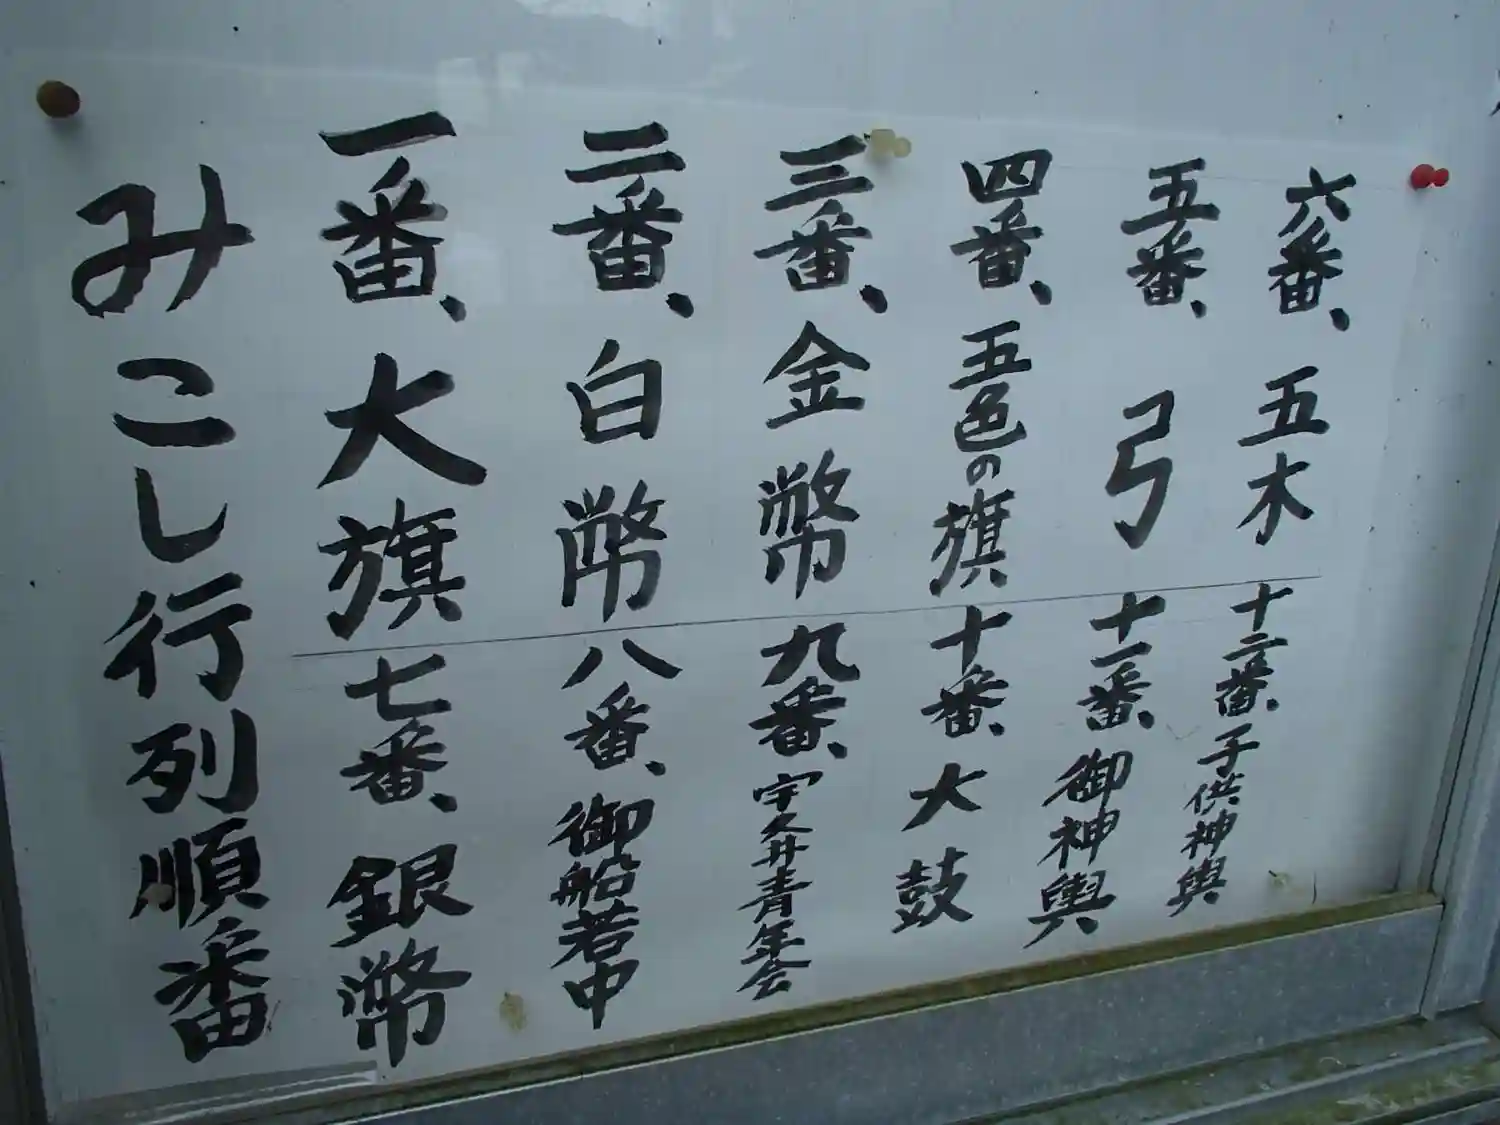 みこし行列順番
一番、大旗
二番、白幣
三番、金幣
四番、五色の旗
五番、弓
六番、五木
七番、銀幣
八番、御船若中
九番、宇久井青年会
十番、大鼓
十一番、御神輿
十二番、子供神輿